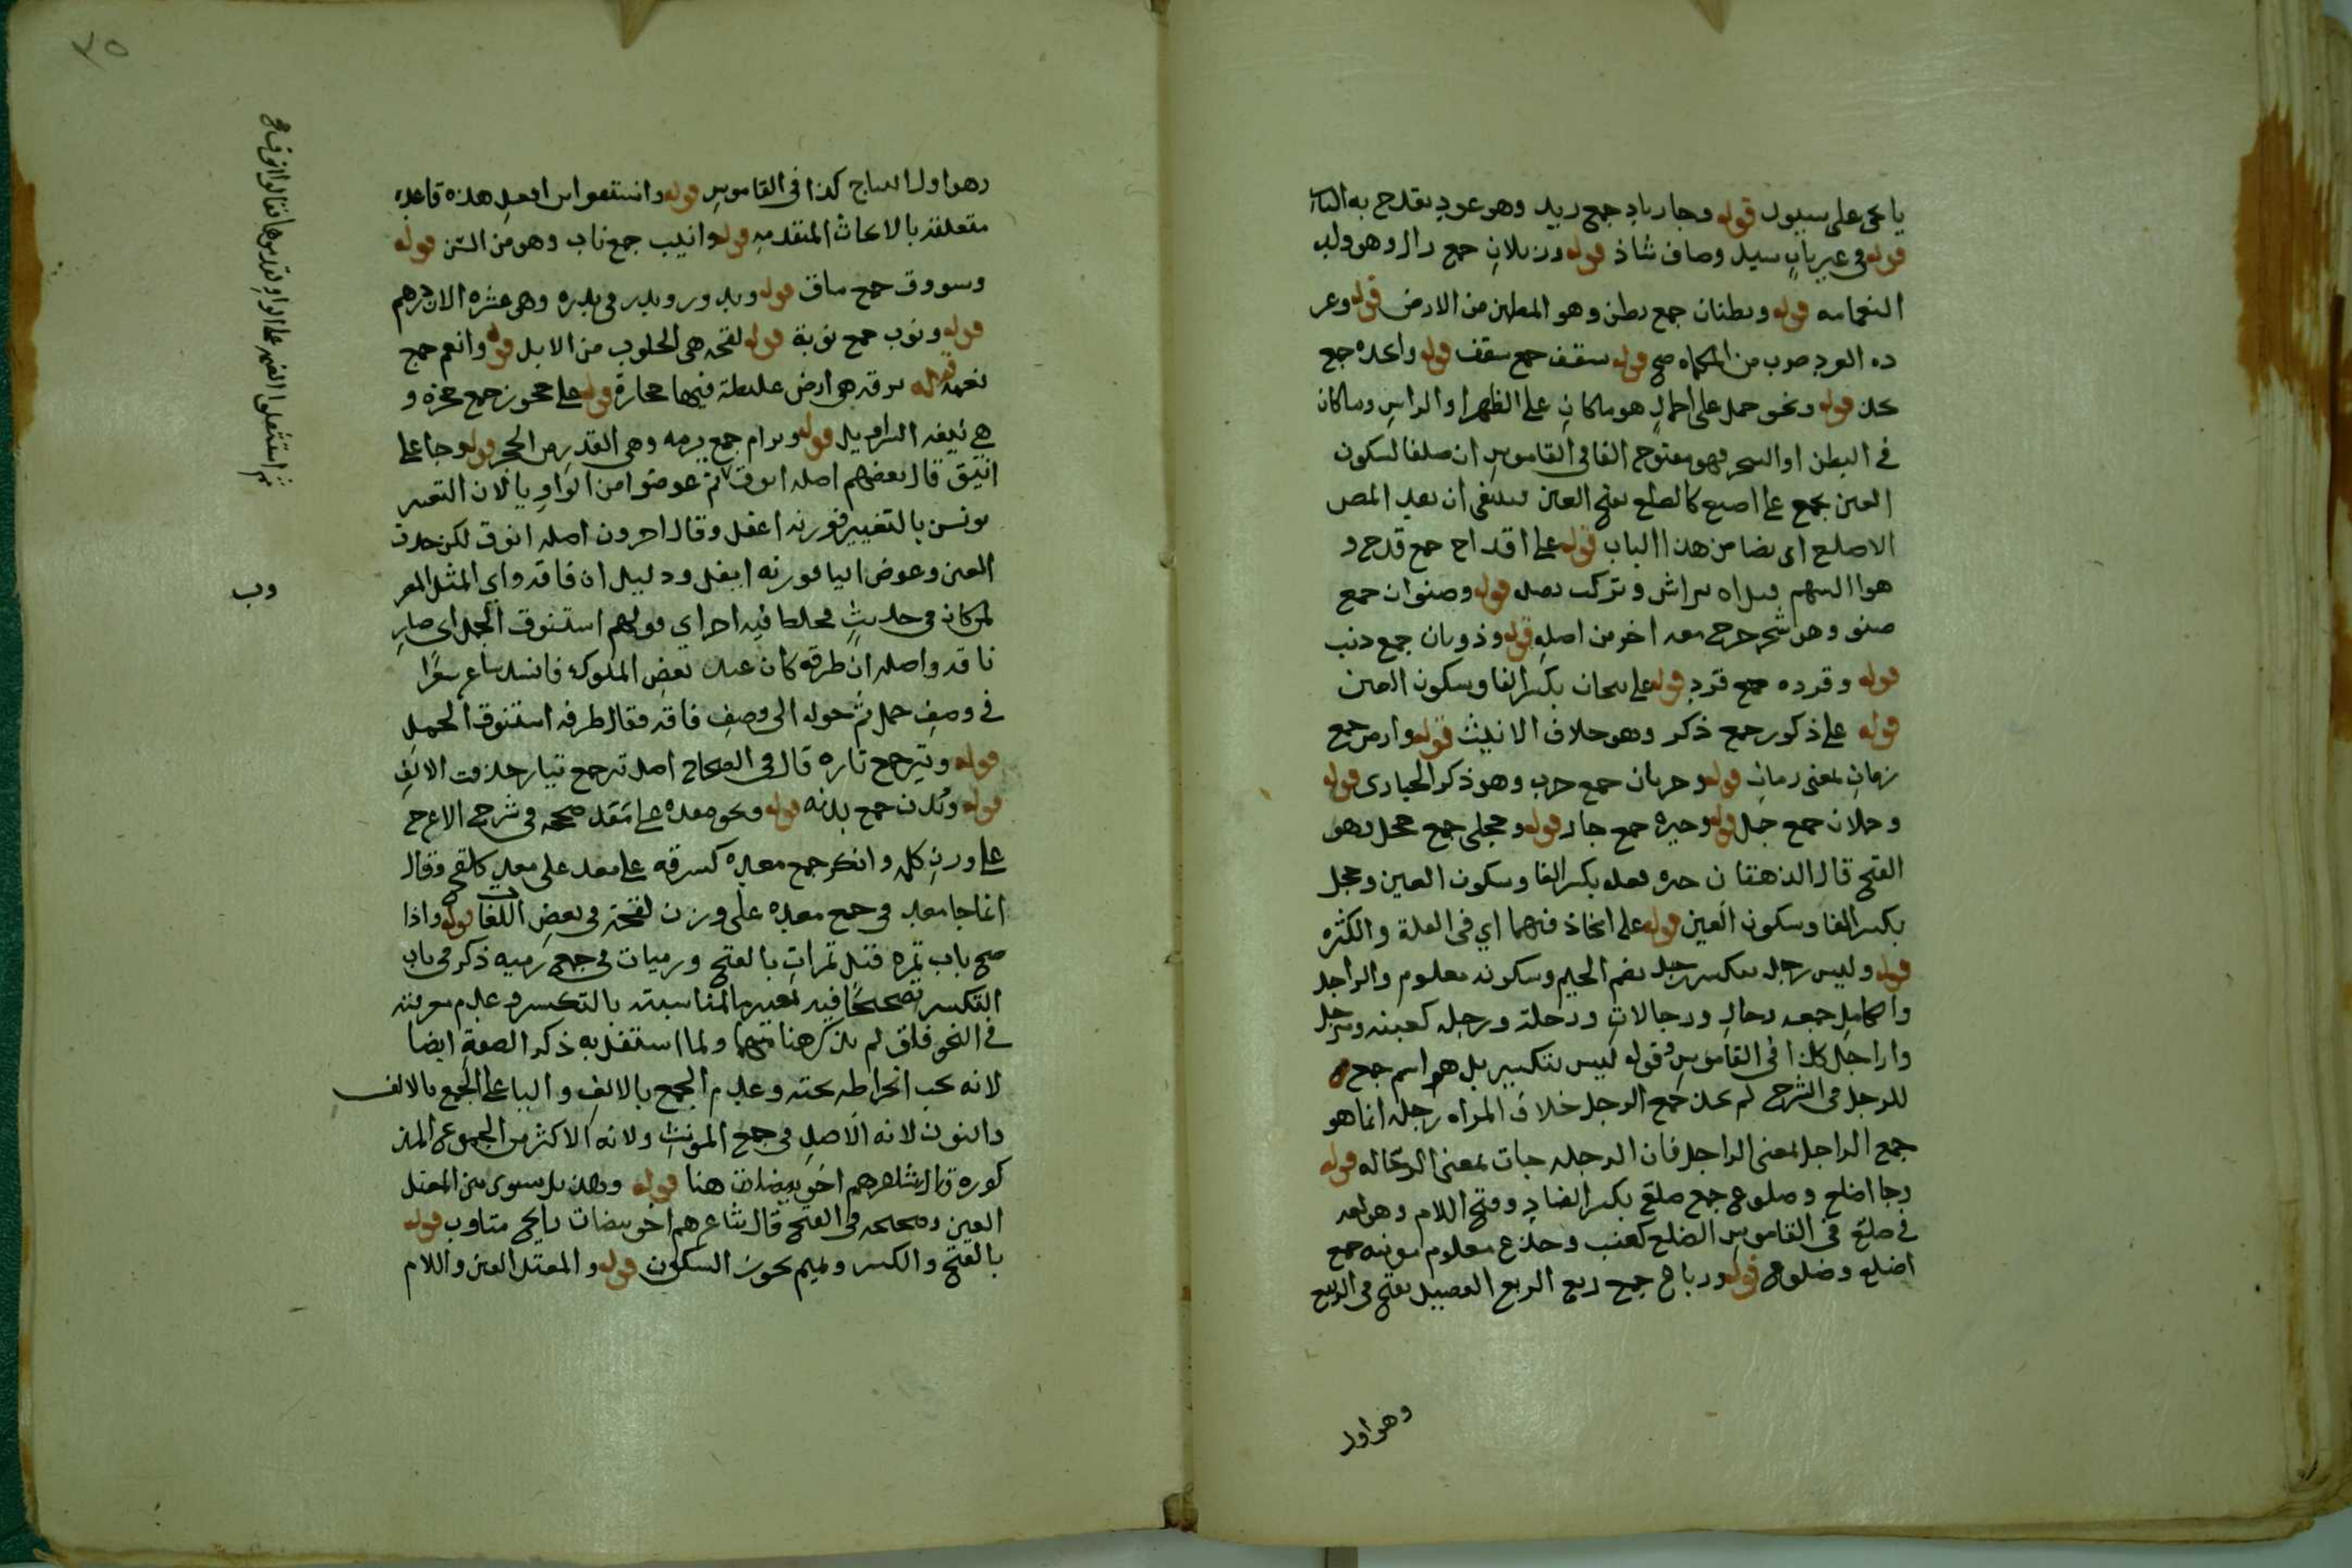 يا يجى على سيول قوله وجا رياد جمع ريد وهو عود يقدح به النار
قوله فى غير باب سيل وصاف شاذ قوله ورئلان جمع رال وهو ولد
النعامه قوله وبطنان جمع بطن وهو المطمئن من الارض قوله وغر
ده الغرد ضرب من الكماه صح قوله سقف جمع سقف قوله وانجده جمع
نجد قوله ونحو حمل على احمال هو ما كان على الظهر او الراس وما كان
فى البطن او الشجر فهو مفتوح الفا فى القاموس ان ضلعا لسكون
العين يجمع على اضلع كالضلع بفتح العين فينبغى ان يعد المص
الاضلع ايضا من هذا الباب قوله على اقداح جمع قدح و
هو السهم قبل ان يراش و تركب نصله قوله وصنوان جمع
صنو وهى شجر خرج معه اخر من اصله قوله وذوبان جمع ذئب
قوله وقرده جمع قرد قوله على بكسر الفا وسكون العين
قوله على ذكور جمع ذكر وهو خلاف الانيث قوله وازمن جمع
زمان بمعنى زمان قوله وخربان جمع خرب وهو ذكر الحبارى قوله
وحملان جمع حمل قوله وجيره جمع جار قوله وحجلى جمع حجل وهو
القبج قال الدهقان جيره فعله بكسر الفا وسكون العين وحجل
بكسر الفا وسكون العين قوله على افخاذ فيهما اي فى القلة والكثره
قوله وليس رجله بتكسير رجل بضم الجيم وسكونه معلوم والراجل
والكامل جمعه رجال ورجالات ورجلة ورجله كعبنه ومرجل
واراجل كذا فى القاموس وقوله ليس بتكسير بل هو اسم جمع
للرجل فى الشرح لم يجز جمع الرجل خلاف المراه رجله انما هو
جمع الراجل بمعنى الراجل فان الرجله جات بمعنى الرجاله قوله
وجا اضلع وضلوع جمع ضلع بكسر الضاد وفتح اللام وهو لغه
فى ضلع فى القاموس الضلع كعنب وجذع معلوم مونثه جمع
اضلع وضلوع قوله ورباع جمع ربع الربع الفصيل ينتج فى الربيع
وهو اول
٣٥
وهو اول النتاج كذا فى القاموس قوله وامتنعوا من افعل هذه قاعده
متعلقة بالابحاث المتقدمه قوله وانيب جمع ناب وهو من السن قوله
وسووق جمع ساق قوله وبدور وبدر فى بدره وهى عشره الاف درهم
قوله ونوب جمع نوبة قوله لقحه هى الحلوب من الابل قوله وانعم جمع
نعمه قوله برقه هى ارض غليظة فيها حجارة قوله على حجوز جمع حجزه و
هي نيفه السراويل قوله وبرام جمع برمه وهى القدر من الحجر قوله وجا على
انيق قال بعضهم اصله انوق ثم عوضوا من الواو يا لان التغيير
يونس بالتغيير فوزنه اعفل وقال اخرون اصله انوق لكن حذف
العين وعوض اليا فوزنه ايفل ودليل ان ناقه واي المثل المعر
لمن كان فى حديث فخلط فيه اخر اي قولهم استنوق الجمل اى صار
ناقه واصله ان طرفه كان عند بعض الملوك فانشد شاعر شعرا
فى وصف جمل ثم حوله الى وصف ناقه فقال طرفه استنوق الجمل
قوله وتير جمع تاره قال فى الصحاح اصله تجمع تيار حذفت الالف
قوله وبدن جمع بدنه قوله ونحو معده على معد صححه فى شرح الاعرج
على وزن كلم وانكر جمع معده كسرقه على معد على معد كلقح وقال
انما جا معد فى جمع معده على وزن لقحة فى بعض اللغات قوله واذا
صح باب تمره قيل تمرات بالفتح ورميات فى جمع رميه ذكر فى باب
التكسير تصحيحا فيه تغيير ما لمناسبته بالتكسير وعدم معرفته
فى النحو فلق لم يذكر هنا فيهما ولما استقل به ذكر الصفة ايضا
لانه يجب انخراطه تحته وعدم الجمع بالالف واليا على الجمع بالالف
والنون لانه الاصل فى جمع المونث ولانه الاكثر من المجموع المذ
كوره قال شاعرهم اخو بيضات هنا قوله وهذيل تسوى بين المعتل
العين وصحيحه فى الفتح قال شاعرهم اخو بيضات رايح متاوب قوله
بالفتح والكسر وتميم تجوز السكون قوله والمعتل العين واللام
ثم استثقلوا الضمه على الواو فقدموها فقالوا اونق صح
وب